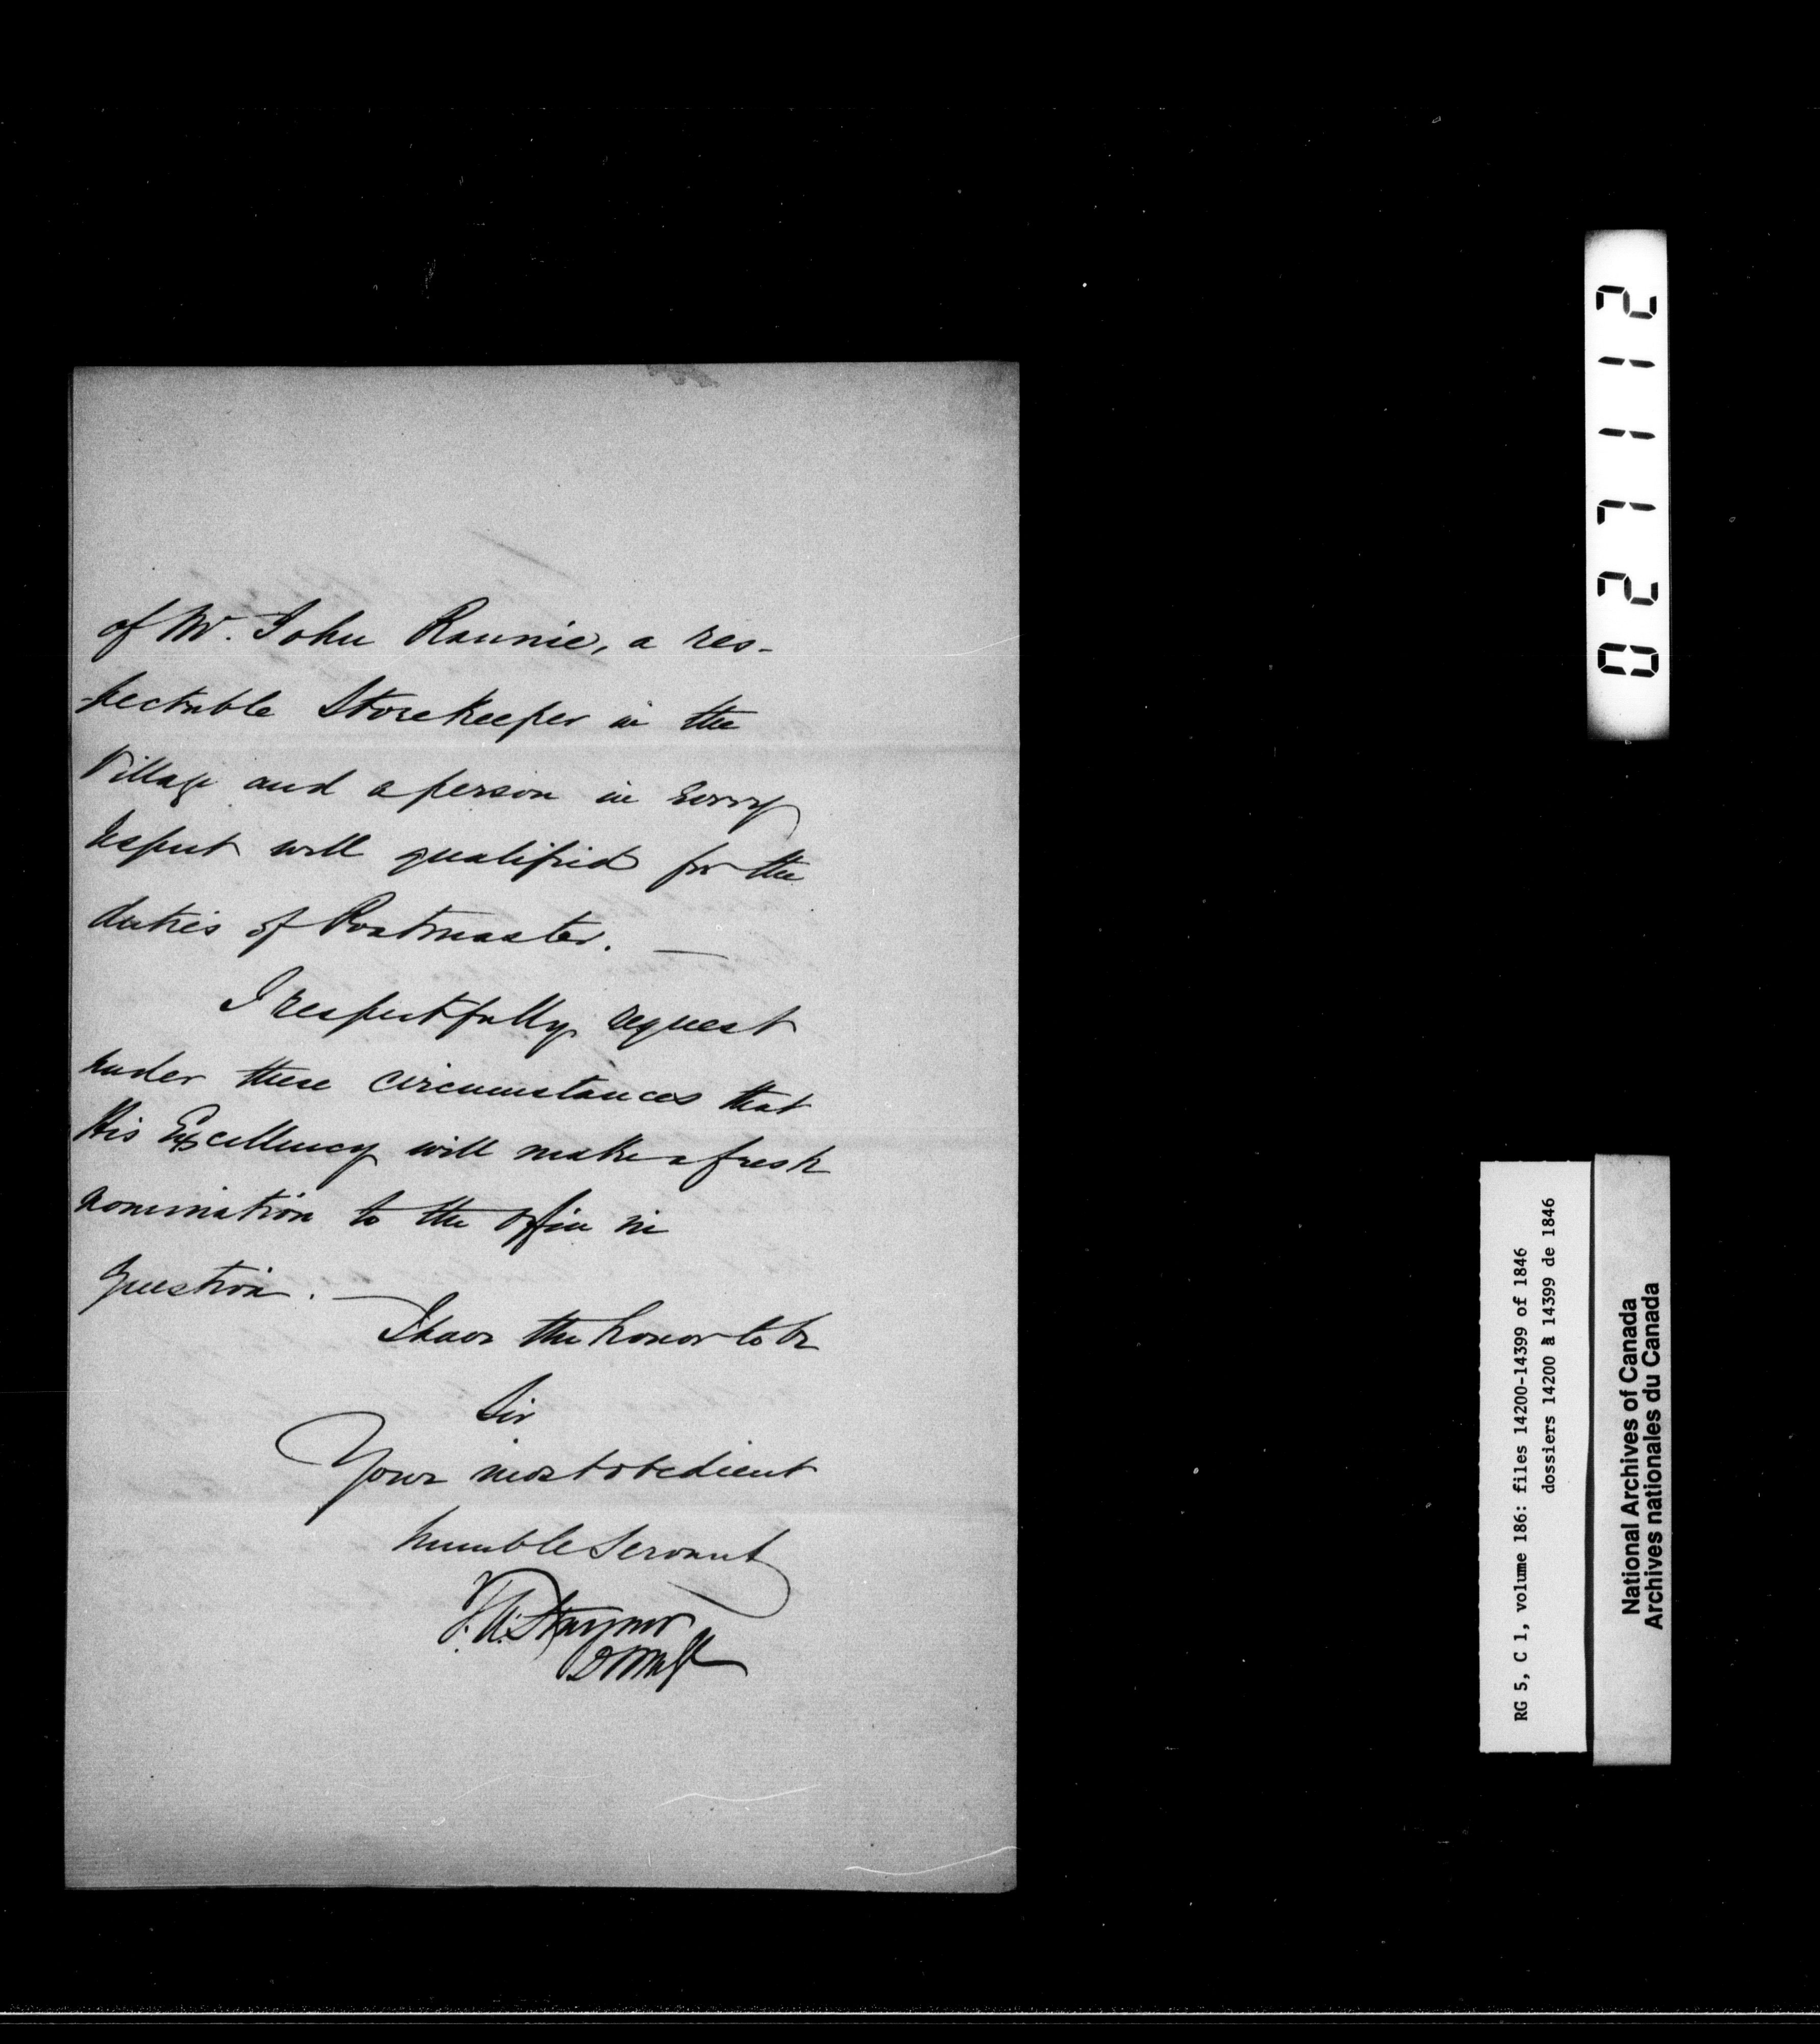 of Mr. John Rannie, a res-
-pectable Storekeeper in the
Village and a person in every
respect well qualified for the
duties of Postmaster. —
I respectfully request
under these circumstances that
His Excellency will make a fresh
nomination to the Office in
question. —
I have the honor to be
Sir
Your most obedient
humble Servant
T.A. Stayner
DPMG
021112
RG 5, C 1, volume 186: files 14200-14399 of 1846
dossiers 14200 à 14399 de 1846
National Archives of Canada
Archives nationales du Canada